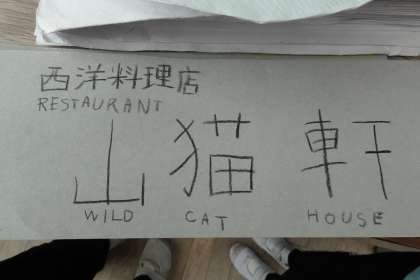 西洋料理店
RESTAURANT
山猫軒
WILD CAT HOUSE